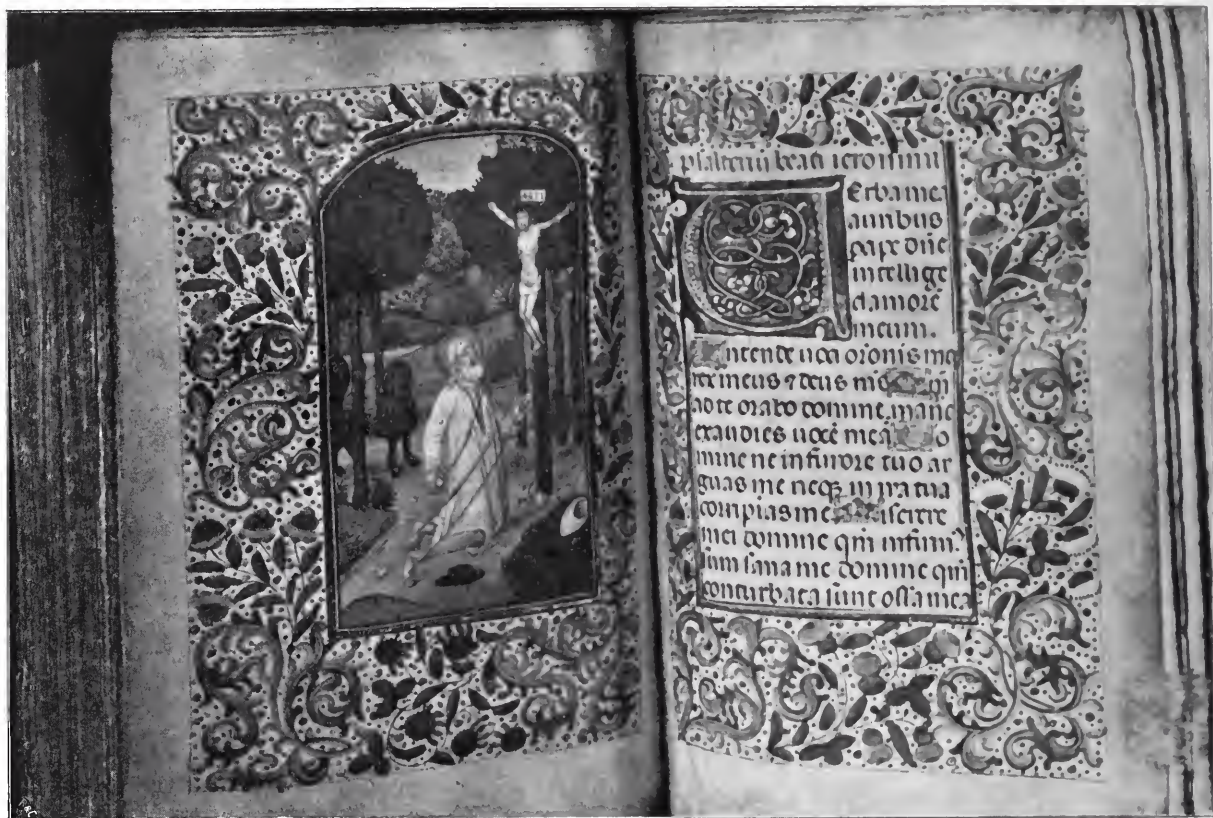 INRI
psalteriū beati ieronimi
Verba mea
auribus
pcipe dn̄e
intellige
clamorē
meum.
Intende uoci orōnis mee
rex meus ⁊ deus meus Qm̄
ad te orabo domine mane
exaudies uocē meā Do
mine ne in furore tuo ar
guas me neqꝫ in ira tua
corripias me Miserere
mei domine qm̄ infirm'
sum sana me domine qm̄
conturbata sunt ossa mea